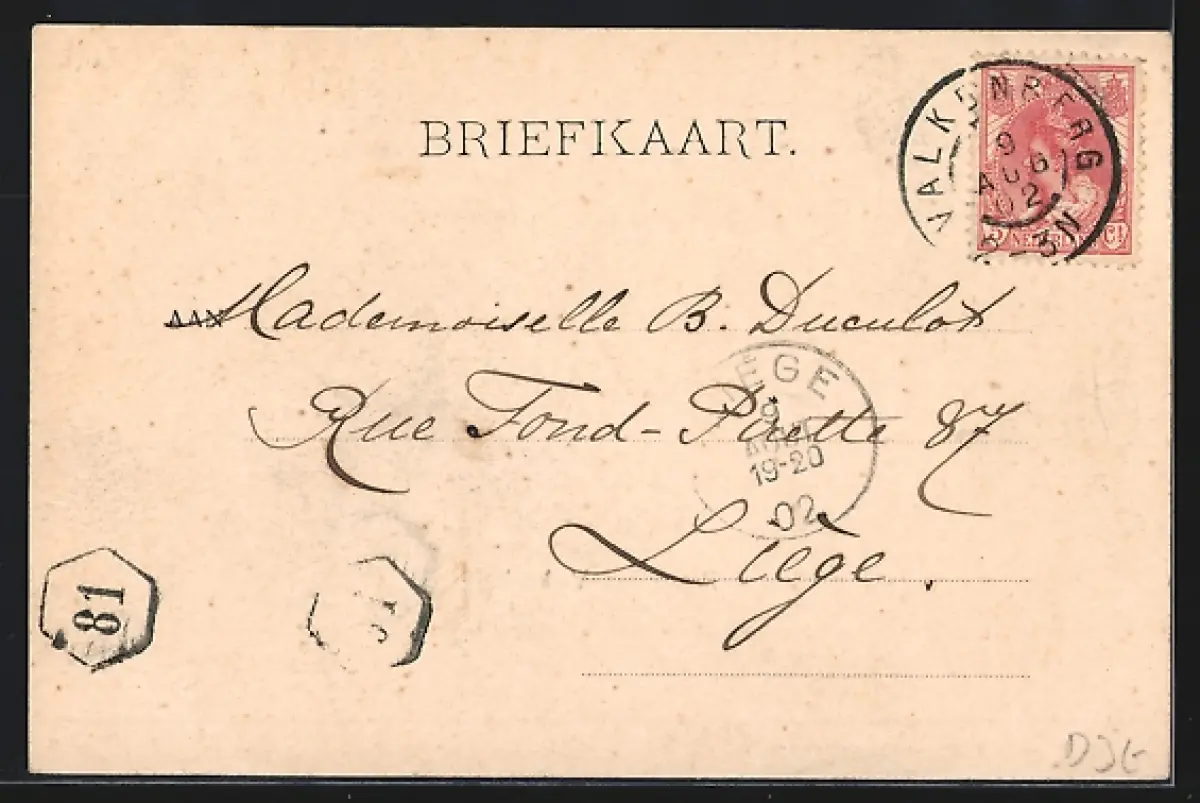 BRIEFKAART.
VALKENBERG
9
AUG
02
2-3N
5 NEDERLAND Ct
AAN Mademoiselle B. Duculot
Rue Fond-Pirette 87
Liège.
IEGE
9
AOUT
19-20
02
81
DJG